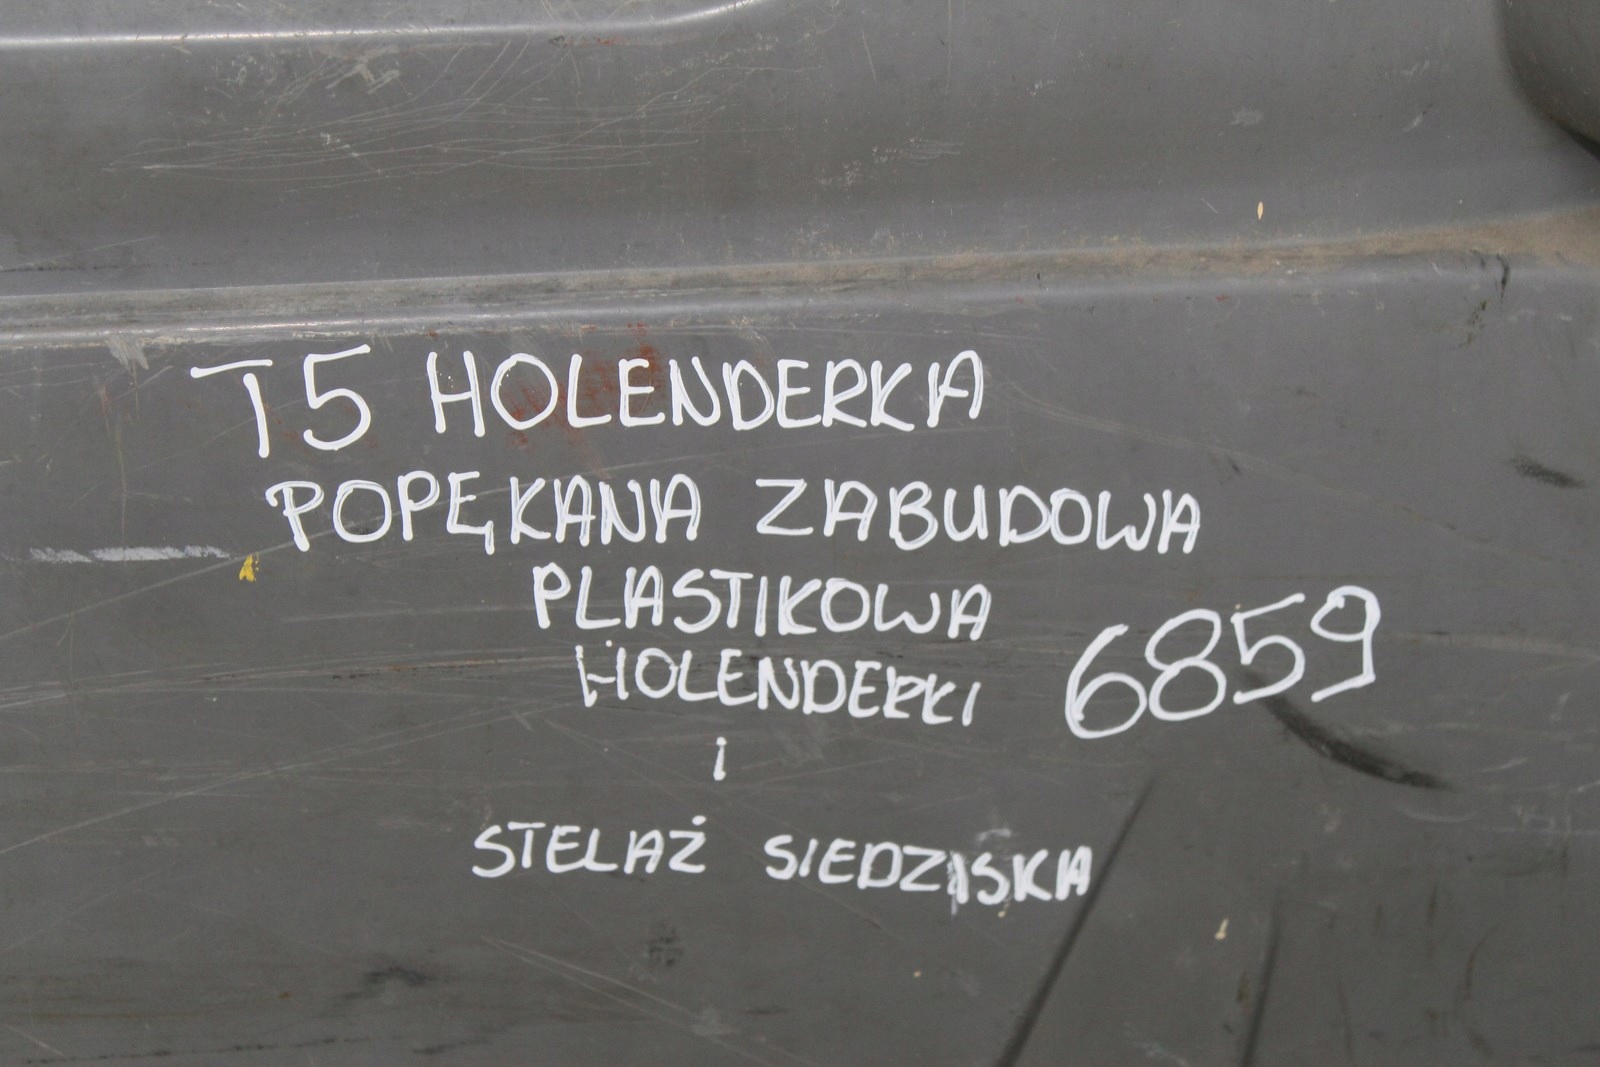 T5 HOLENDERKA
POPĘKANA ZABUDOWA
PLASTIKOWA
HOLENDERKI
6859
i
STELAŻ SIEDZISKA